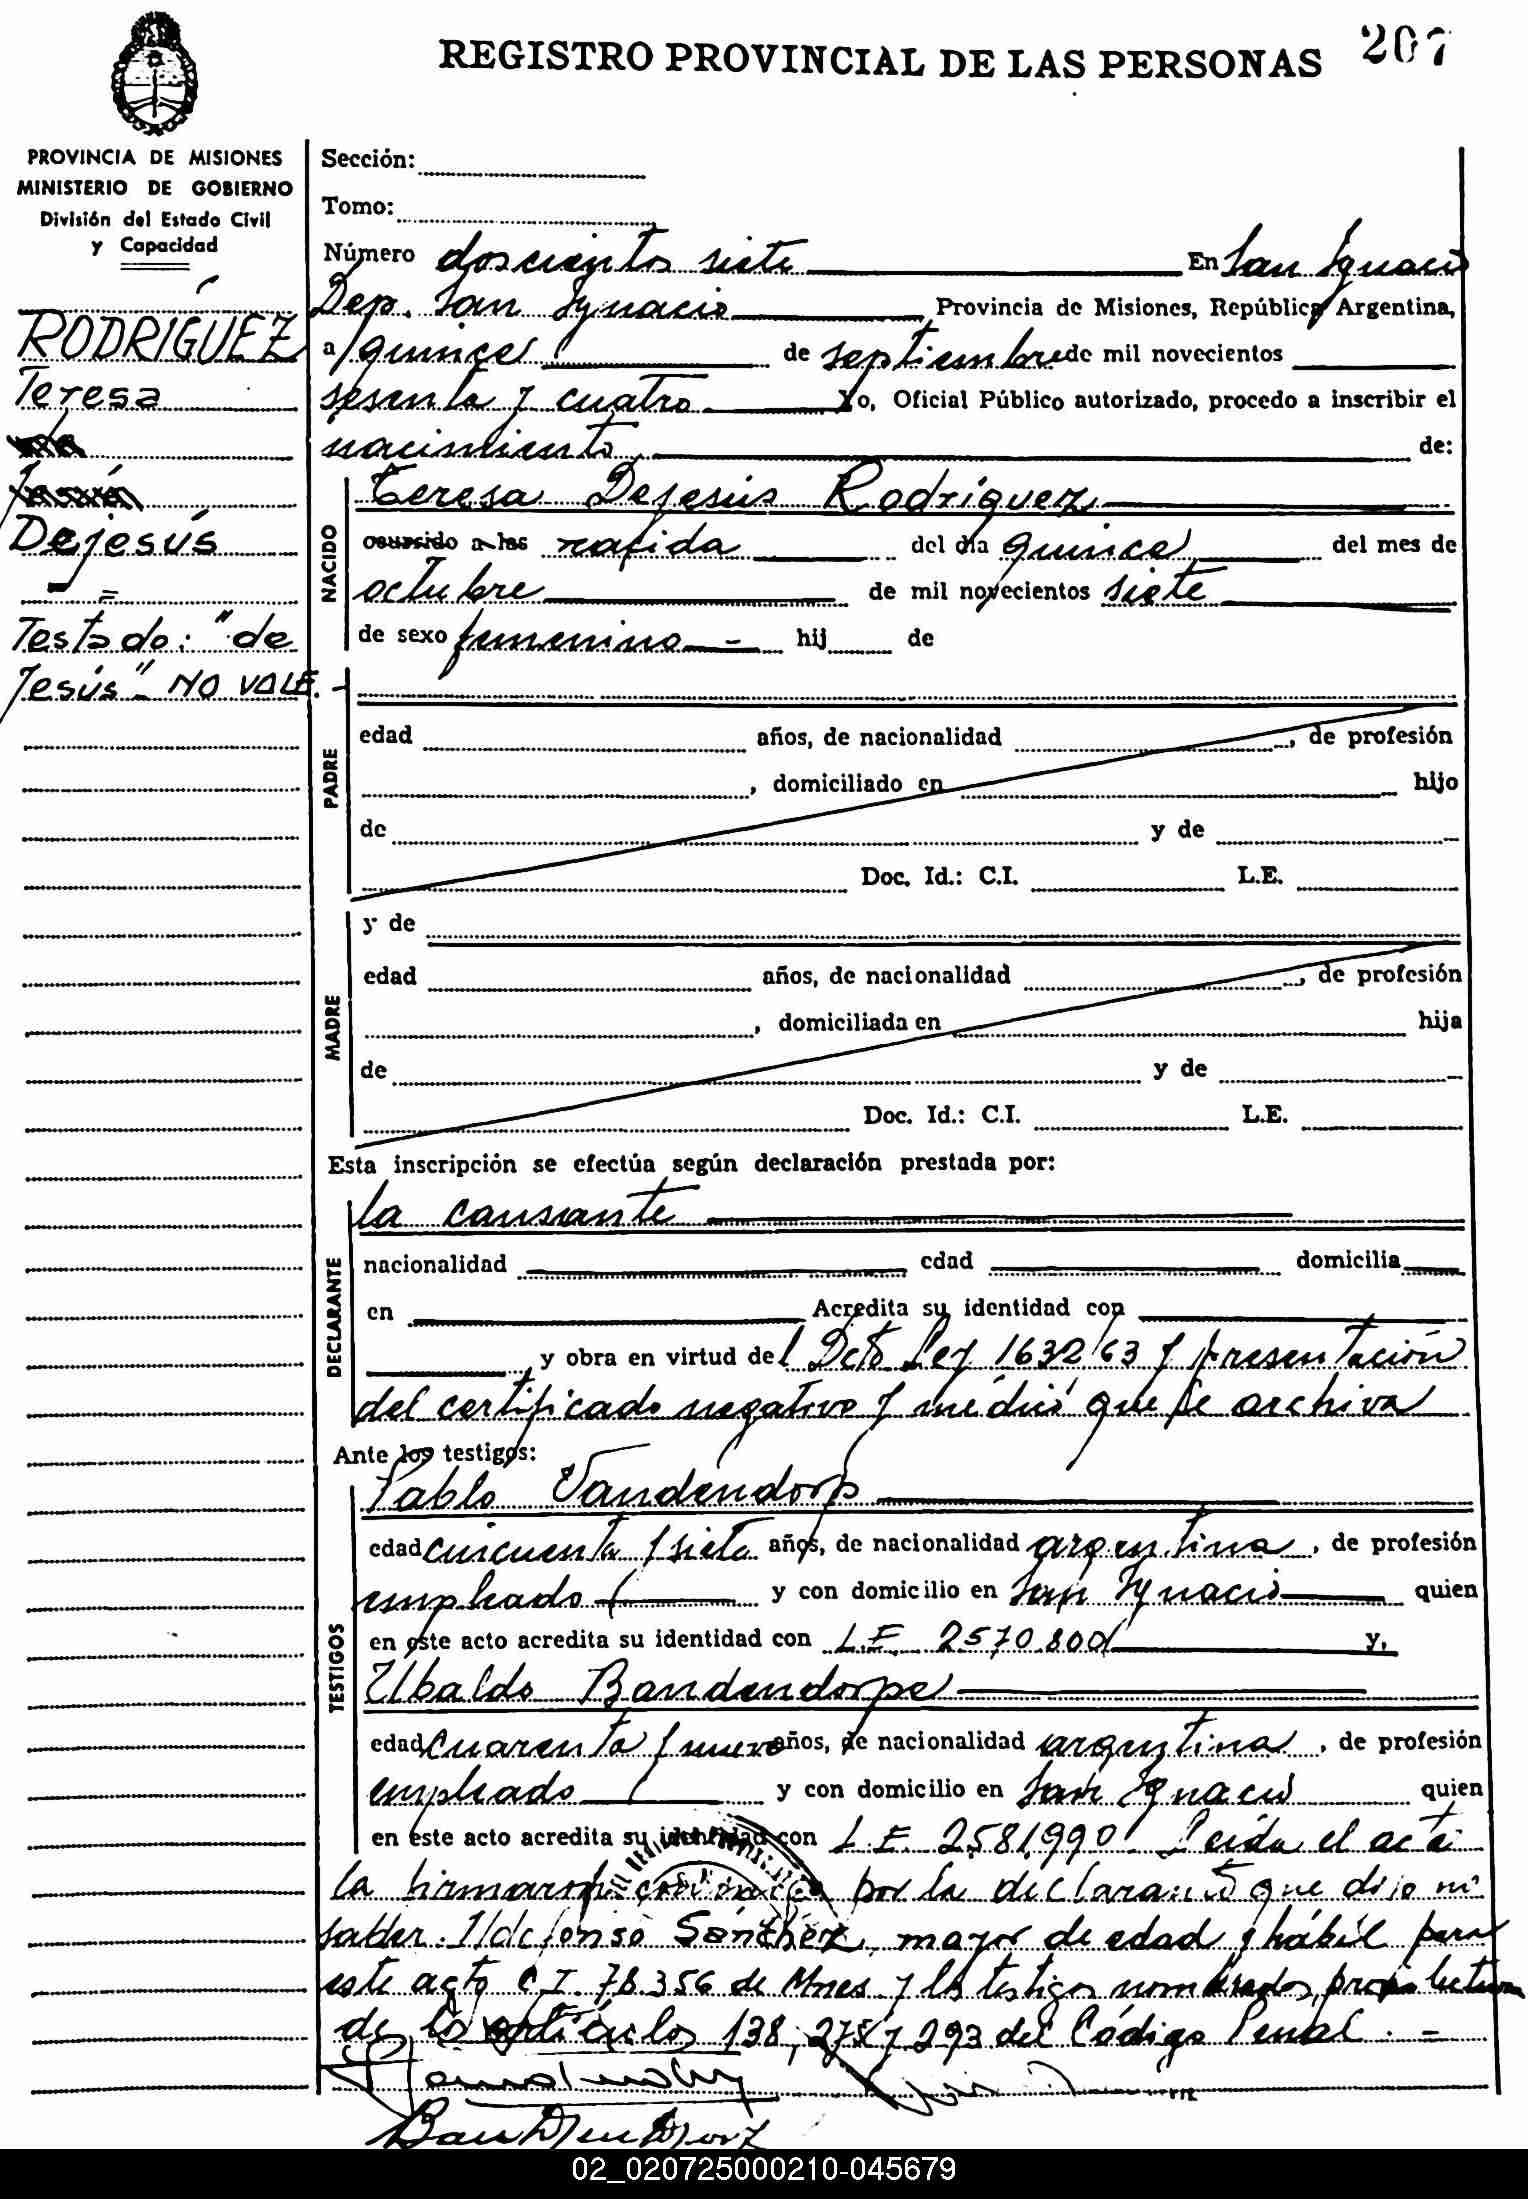 REGISTRO PROVINCIAL DE LAS PERSONAS 207
PROVINCIA DE MISIONES
MINISTERIO DE GOBIERNO
División del Estado Civil
y Capacidad
RODRIGUEZ
Teresa
Dejesús
=
Testado: "de
Jesús" - NO VALE. -
Sección:
Tomo:
Número doscientos siete En San Ignacio
Dep. San Ignacio Provincia de Misiones, República Argentina,
a quince de septiembre de mil novecientos
sesenta y cuatro. Yo, Oficial Público autorizado, procedo a inscribir el
nacimiento de:
NACIDO
Teresa Dejesús Rodríguez
ocurrido a las nacida del día quince del mes de
octubre de mil novecientos siete
de sexo femenino - hij de
PADRE
edad años, de nacionalidad , de profesión
, domiciliado en hijo
de y de
Doc. Id.: C.I. L.E.
MADRE
y de
edad años, de nacionalidad , de profesión
, domiciliada en hija
de y de
Doc. Id.: C.I. L.E.
Esta inscripción se efectúa según declaración prestada por:
DECLARANTE
la causante
nacionalidad edad domicilia
en Acredita su identidad con
, y obra en virtud del Dcto Ley 1632/63 y presentación
del certificado negativo y médico que se archiva
Ante los testigos:
TESTIGOS
Pablo Vandendorp
edad cincuenta y siete años, de nacionalidad argentina, de profesión
empleado y con domicilio en San Ignacio quien
en este acto acredita su identidad con L.E. 2570.800 y,
Ubaldo Bandendorpe
edad cuarenta y nueve años, de nacionalidad argentina, de profesión
empleado y con domicilio en San Ignacio quien
en este acto acredita su identidad con L.E. 2.581.990. Leída el acta
la firmaron conmigo por la declarante que dijo no
saber. Ildefonso Sánchez, mayor de edad y hábil para
este acto C.I. 78.356 de Mnes. y los testigos nombrados, previa lectura
de los artículos 138, 275 y 293 del Código Penal. -
02_020725000210-045679